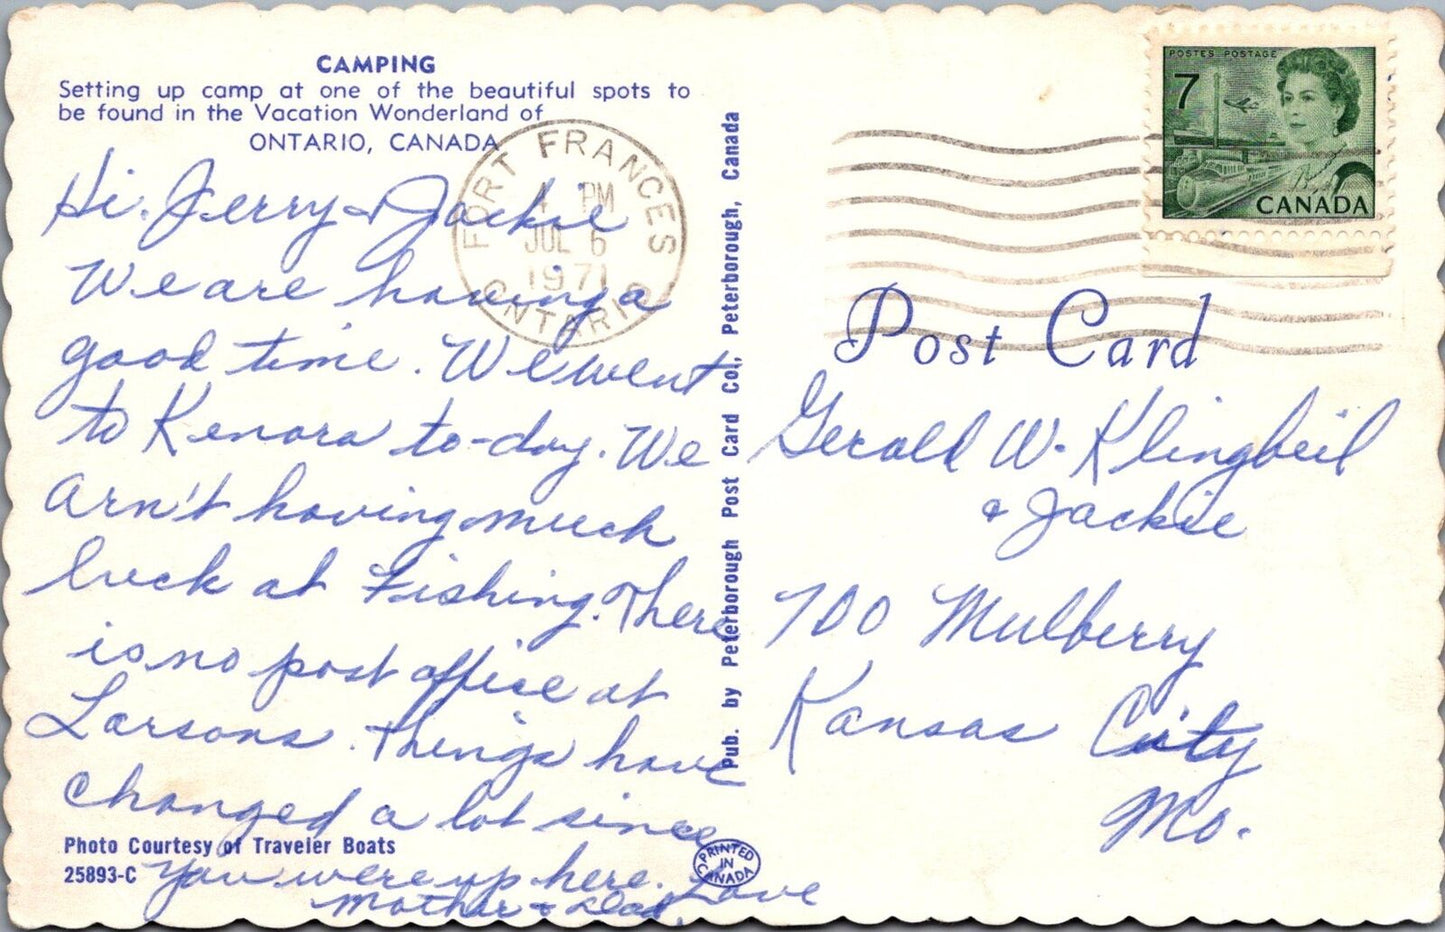 CAMPING
Setting up camp at one of the beautiful spots to
be found in the Vacation Wonderland of
ONTARIO, CANADA
Hi. Jerry & Jackie
We are having a
good time. We went
to Kenora to-day. We
arn't having much
luck at Fishing. There
is no post office at
Larsons. Things have
changed a lot since
you were up here. Love
Mother & Dad.
Photo Courtesy of Traveler Boats
25893-C
Pub. by Peterborough Post Card Co., Peterborough, Canada
PRINTED
IN
CANADA
FORT FRANCES
4 PM
JUL 6
1971
ONTARIO
POSTES POSTAGE
7
CANADA
Post Card
Gerald W. Klingbeil
& Jackie
700 Mulberry
Kansas City
Mo.